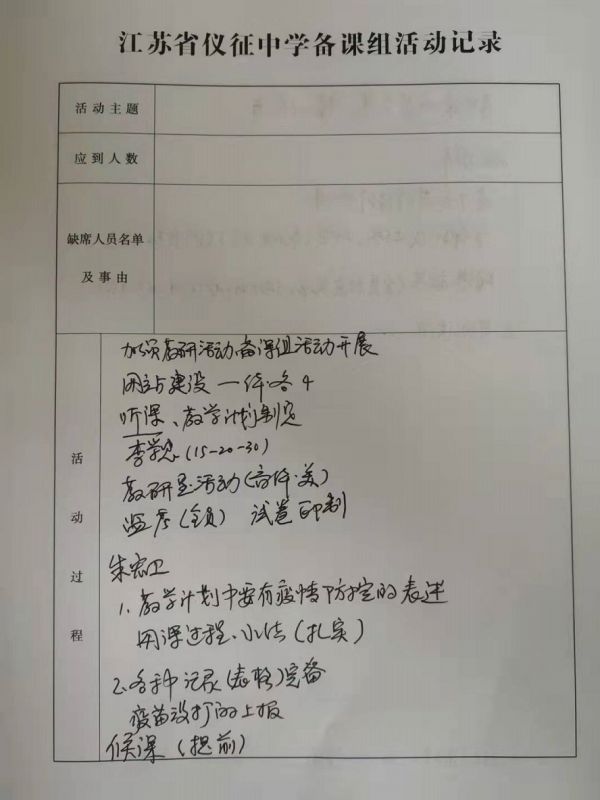 江苏省仪征中学备课组活动记录
活动主题
应到人数
缺席人员名单
及事由
活动过程
加强教研活动、备课组活动开展
网站建设 一体各4
听课、教学计划制定
(15-20-30)
教研室活动(音体·美)
监考(全员) 试卷印制
朱宏卫
1、教学计划中要有疫情防控的表述
用课过程、小结(扎实)
2、各种记录(表格)完备
疫苗没打的上报
候课(提前)